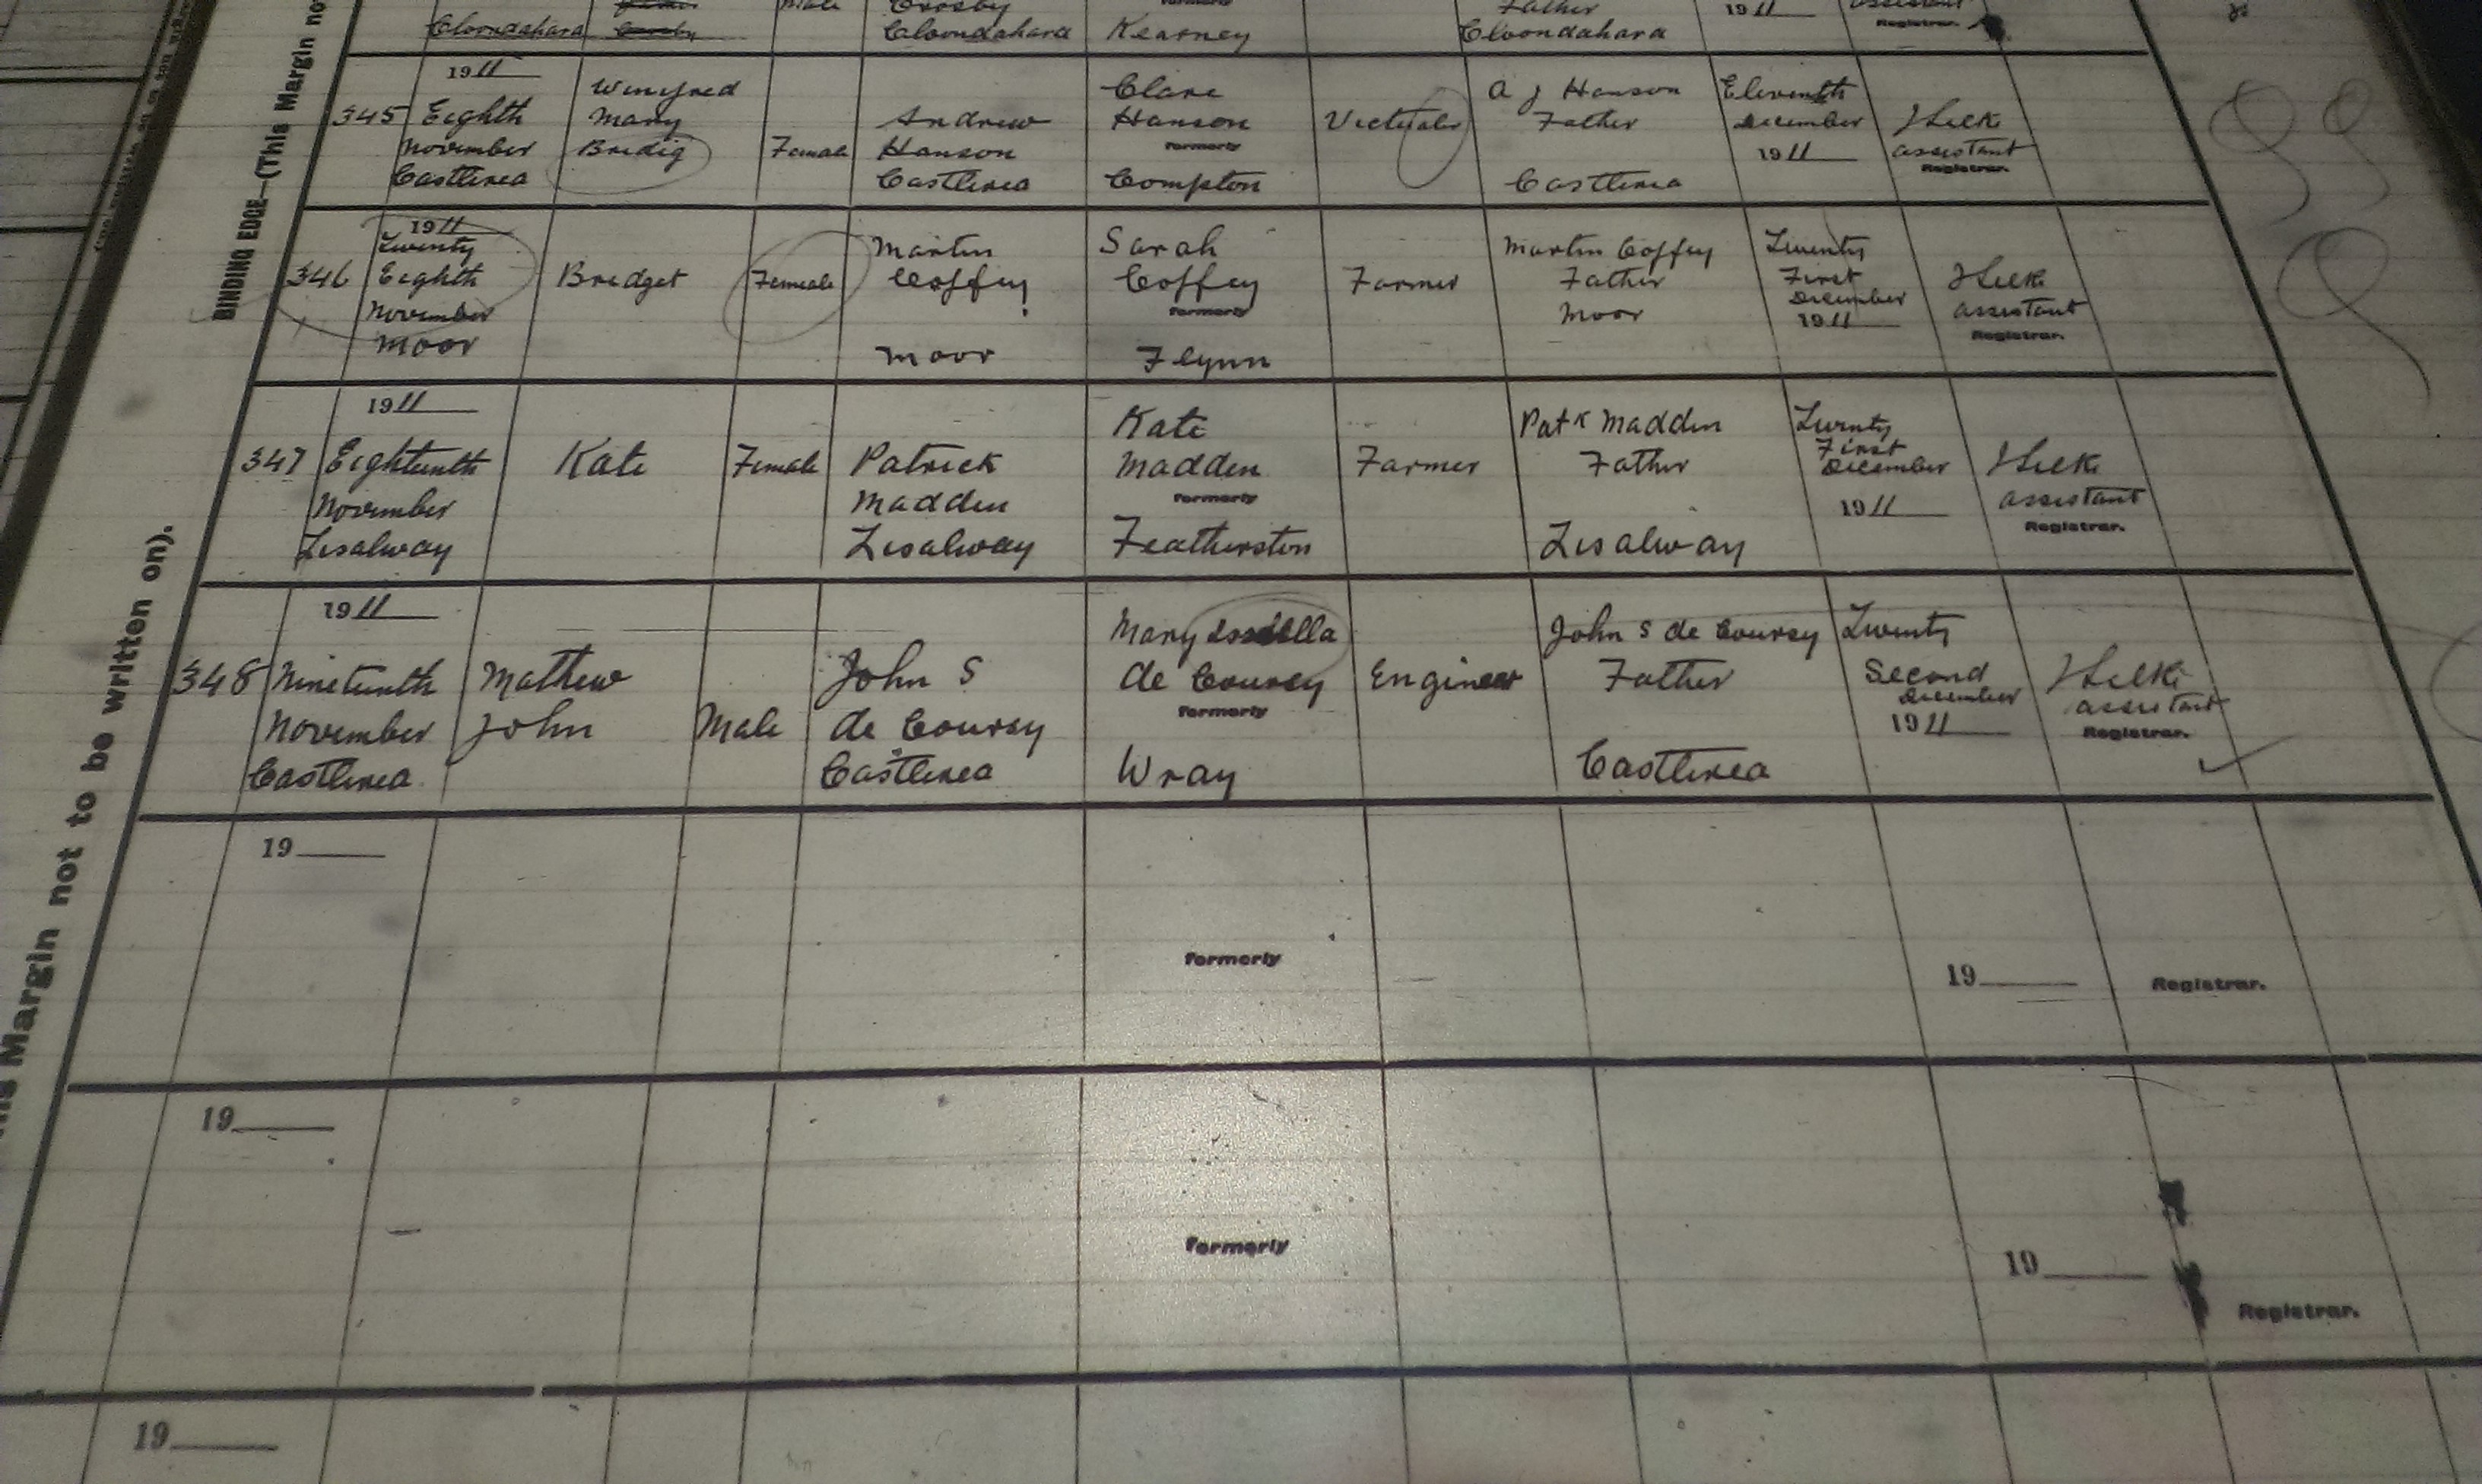 Male
Crosby
Father
1911
Registrar.
Cloondahara
Cloondahara
Kearney
Cloondahara
BINDING EDGE—(This Margin not to be written on).
345
1911
Eighth
November
Castlerea
Winyfred
Mary
Bredig
Female
Andrew
Hanson
Castlerea
Clare
Hanson
formerly
Compton
Victualer
A J Hanson
Father
Castlerea
Eleventh
December
1911
assistant
Registrar.
346
1911
Twenty
Eighth
November
Moor
Bredget
Female
Martin
Coffey
Moor
Sarah
Coffey
formerly
Flynn
Farmer
Martin Coffey
Father
Moor
Twenty
First
December
1911
assistant
Registrar.
347
1911
Eighteenth
November
Lisalway
Kate
Female
Patrick
Madden
Lisalway
Kate
Madden
formerly
Featherston
Farmer
Patk Madden
Father
Lisalway
Twenty
First
December
1911
assistant
Registrar.
348
1911
Nineteenth
November
Castlerea
Mathew
John
Male
John S
de Courcy
Castlerea
Mary Issabella
de Courcy
formerly
Wray
Engineer
John S de Courcy
Father
Castlerea
Twenty
Second
December
1911
assistant
Registrar.
19
formerly
19
Registrar.
19
formerly
19
Registrar.
19